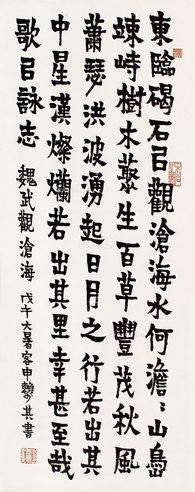 東臨碣石㠯觀滄海水何澹〻山島
竦峙樹木叢生百草豐茂秋風
蕭瑟洪波湧起日月之行若出其
中星漢燦爛若出其里幸甚至哉
歌㠯詠志 魏武觀滄海 戊午大暑客申 其書